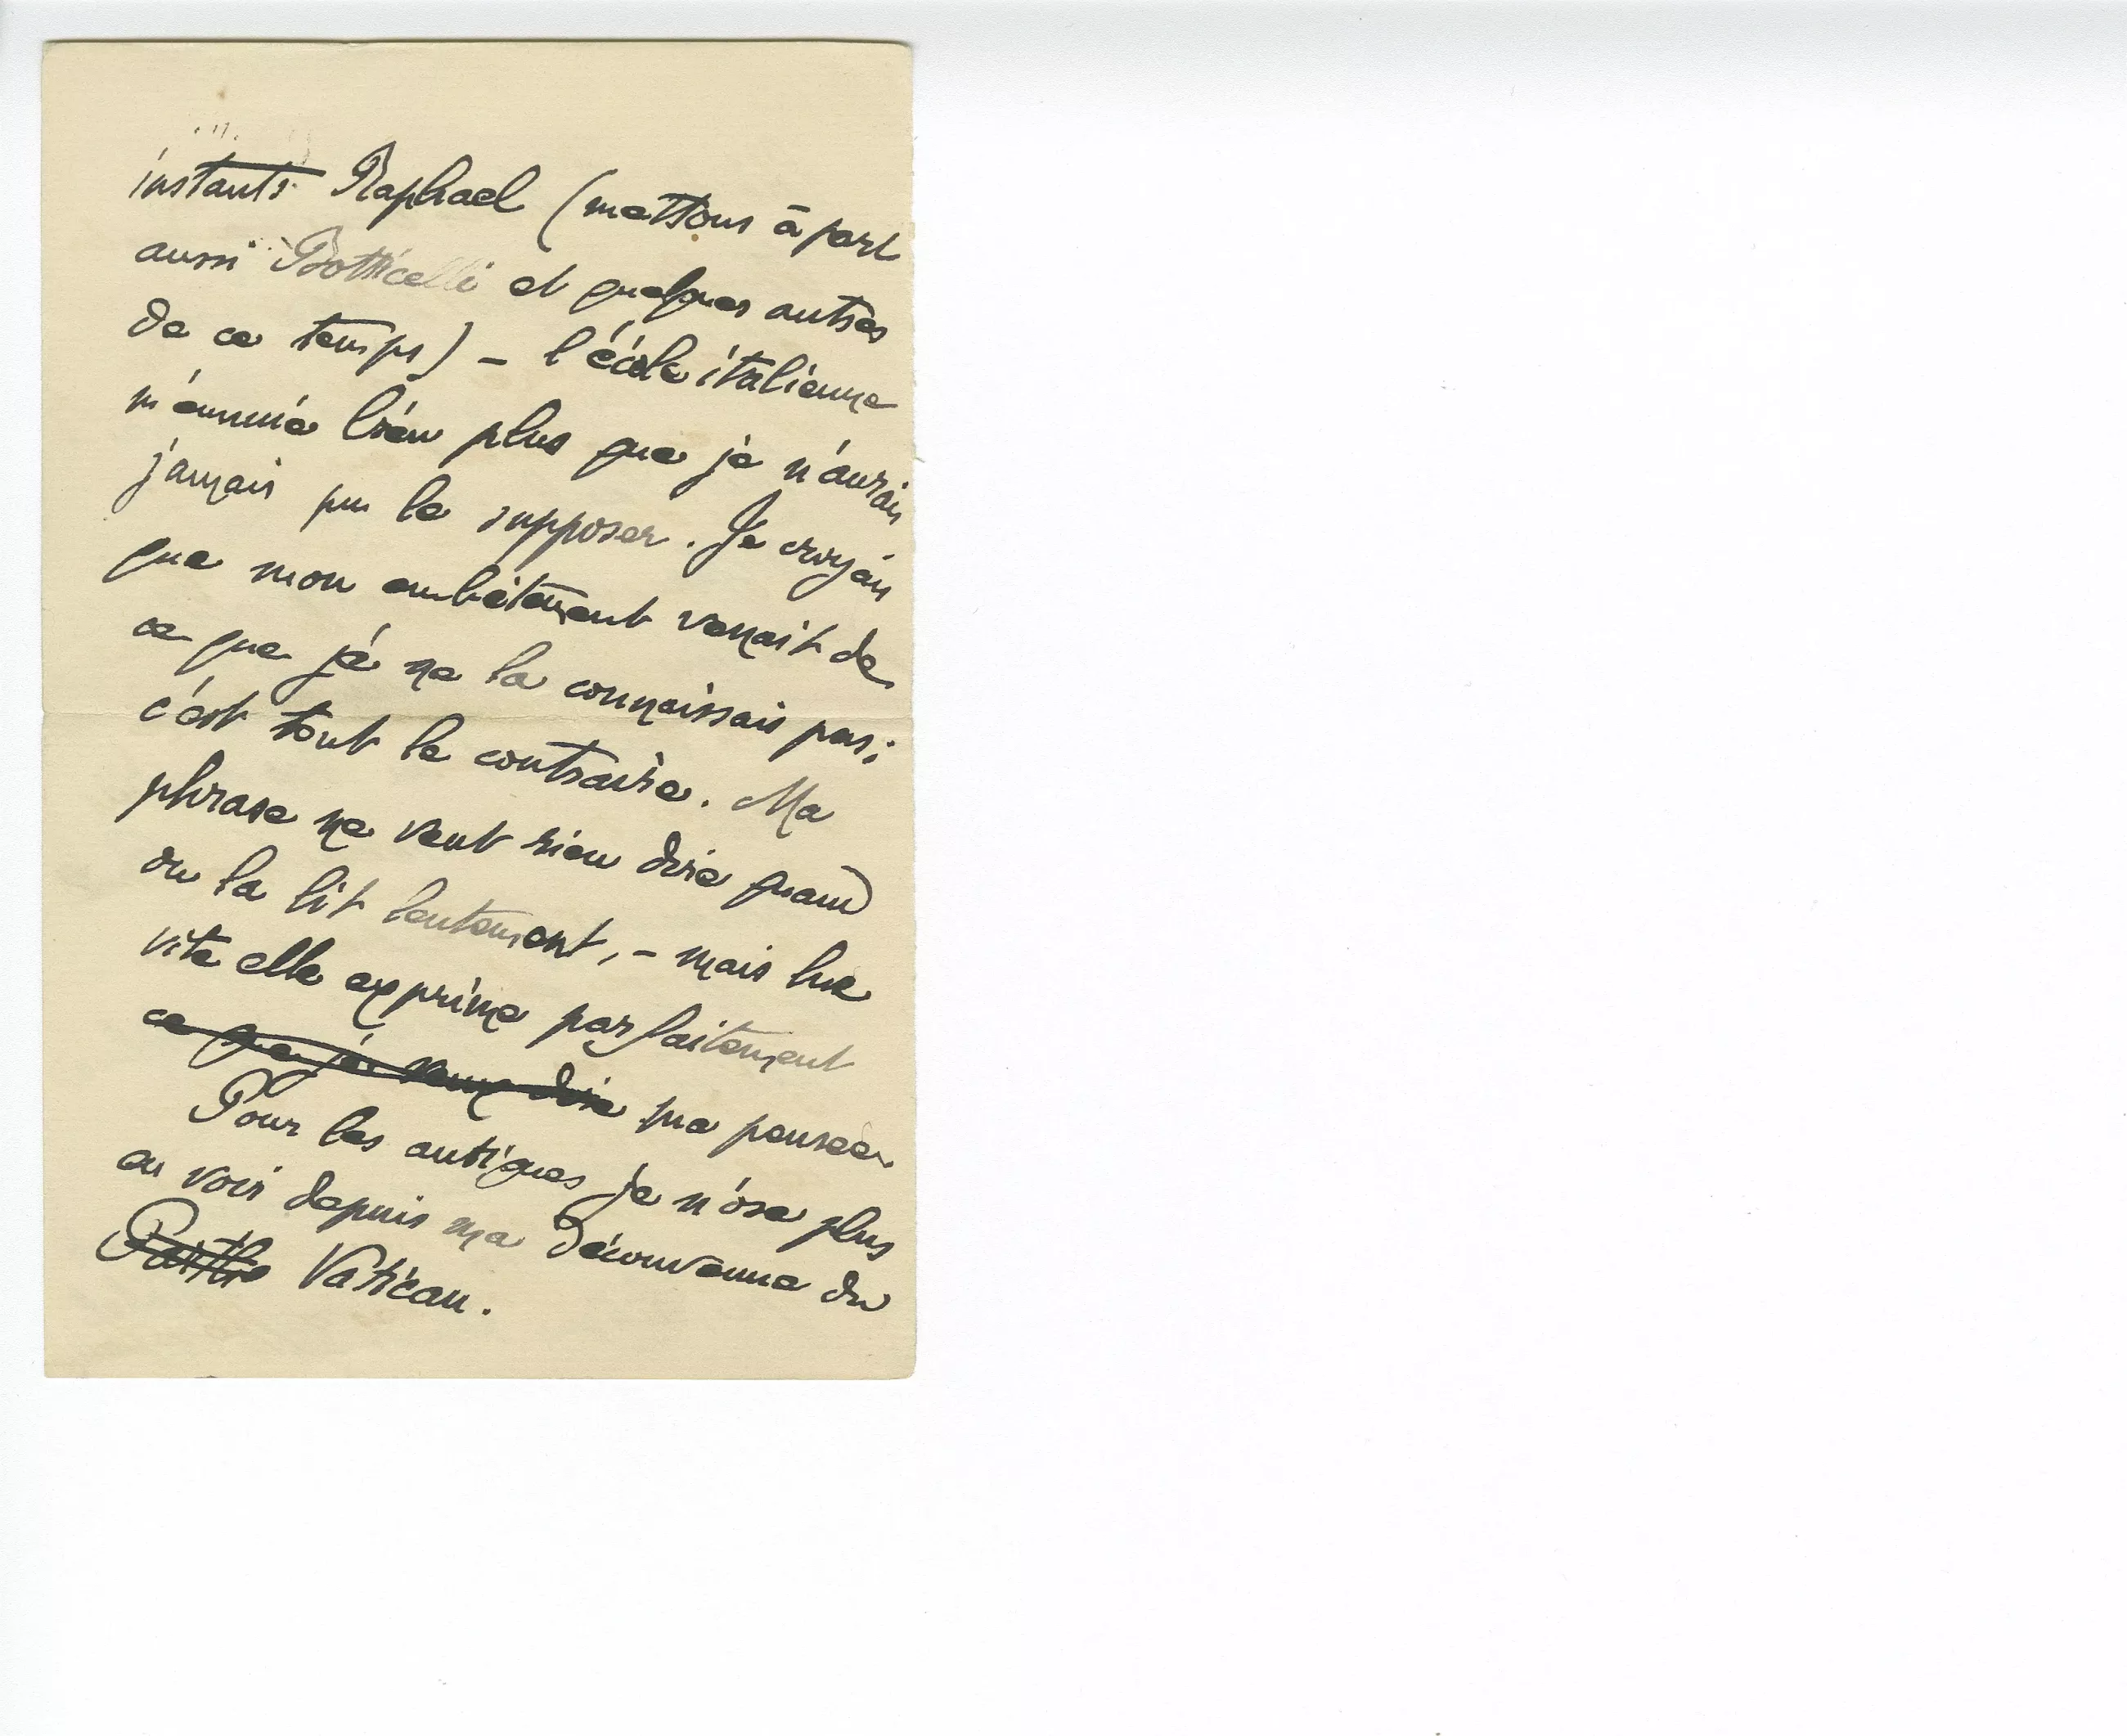 instants Raphael (mettons à part
aussi Botticelli et quelques autres
de ce temps) – l'école italienne
m'ennuie bien plus que je n'aurais
jamais pu le supposer. Je croyais
que mon embêtement venait de
ce que je ne la connaissais pas ;
c'est tout le contraire. Ma
phrase ne veut rien dire quand
on la lit lentement, – mais lue
vite elle exprime parfaitement
ce que je veux dire ma pensée.
Pour les antiques je n'ose plus
en voir depuis ma découverte du
Vatican.